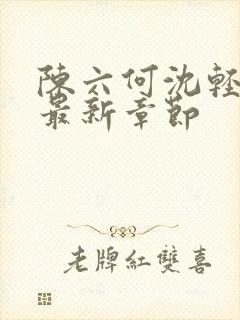 陳六何沈輕
最新章節
老牌紅雙喜